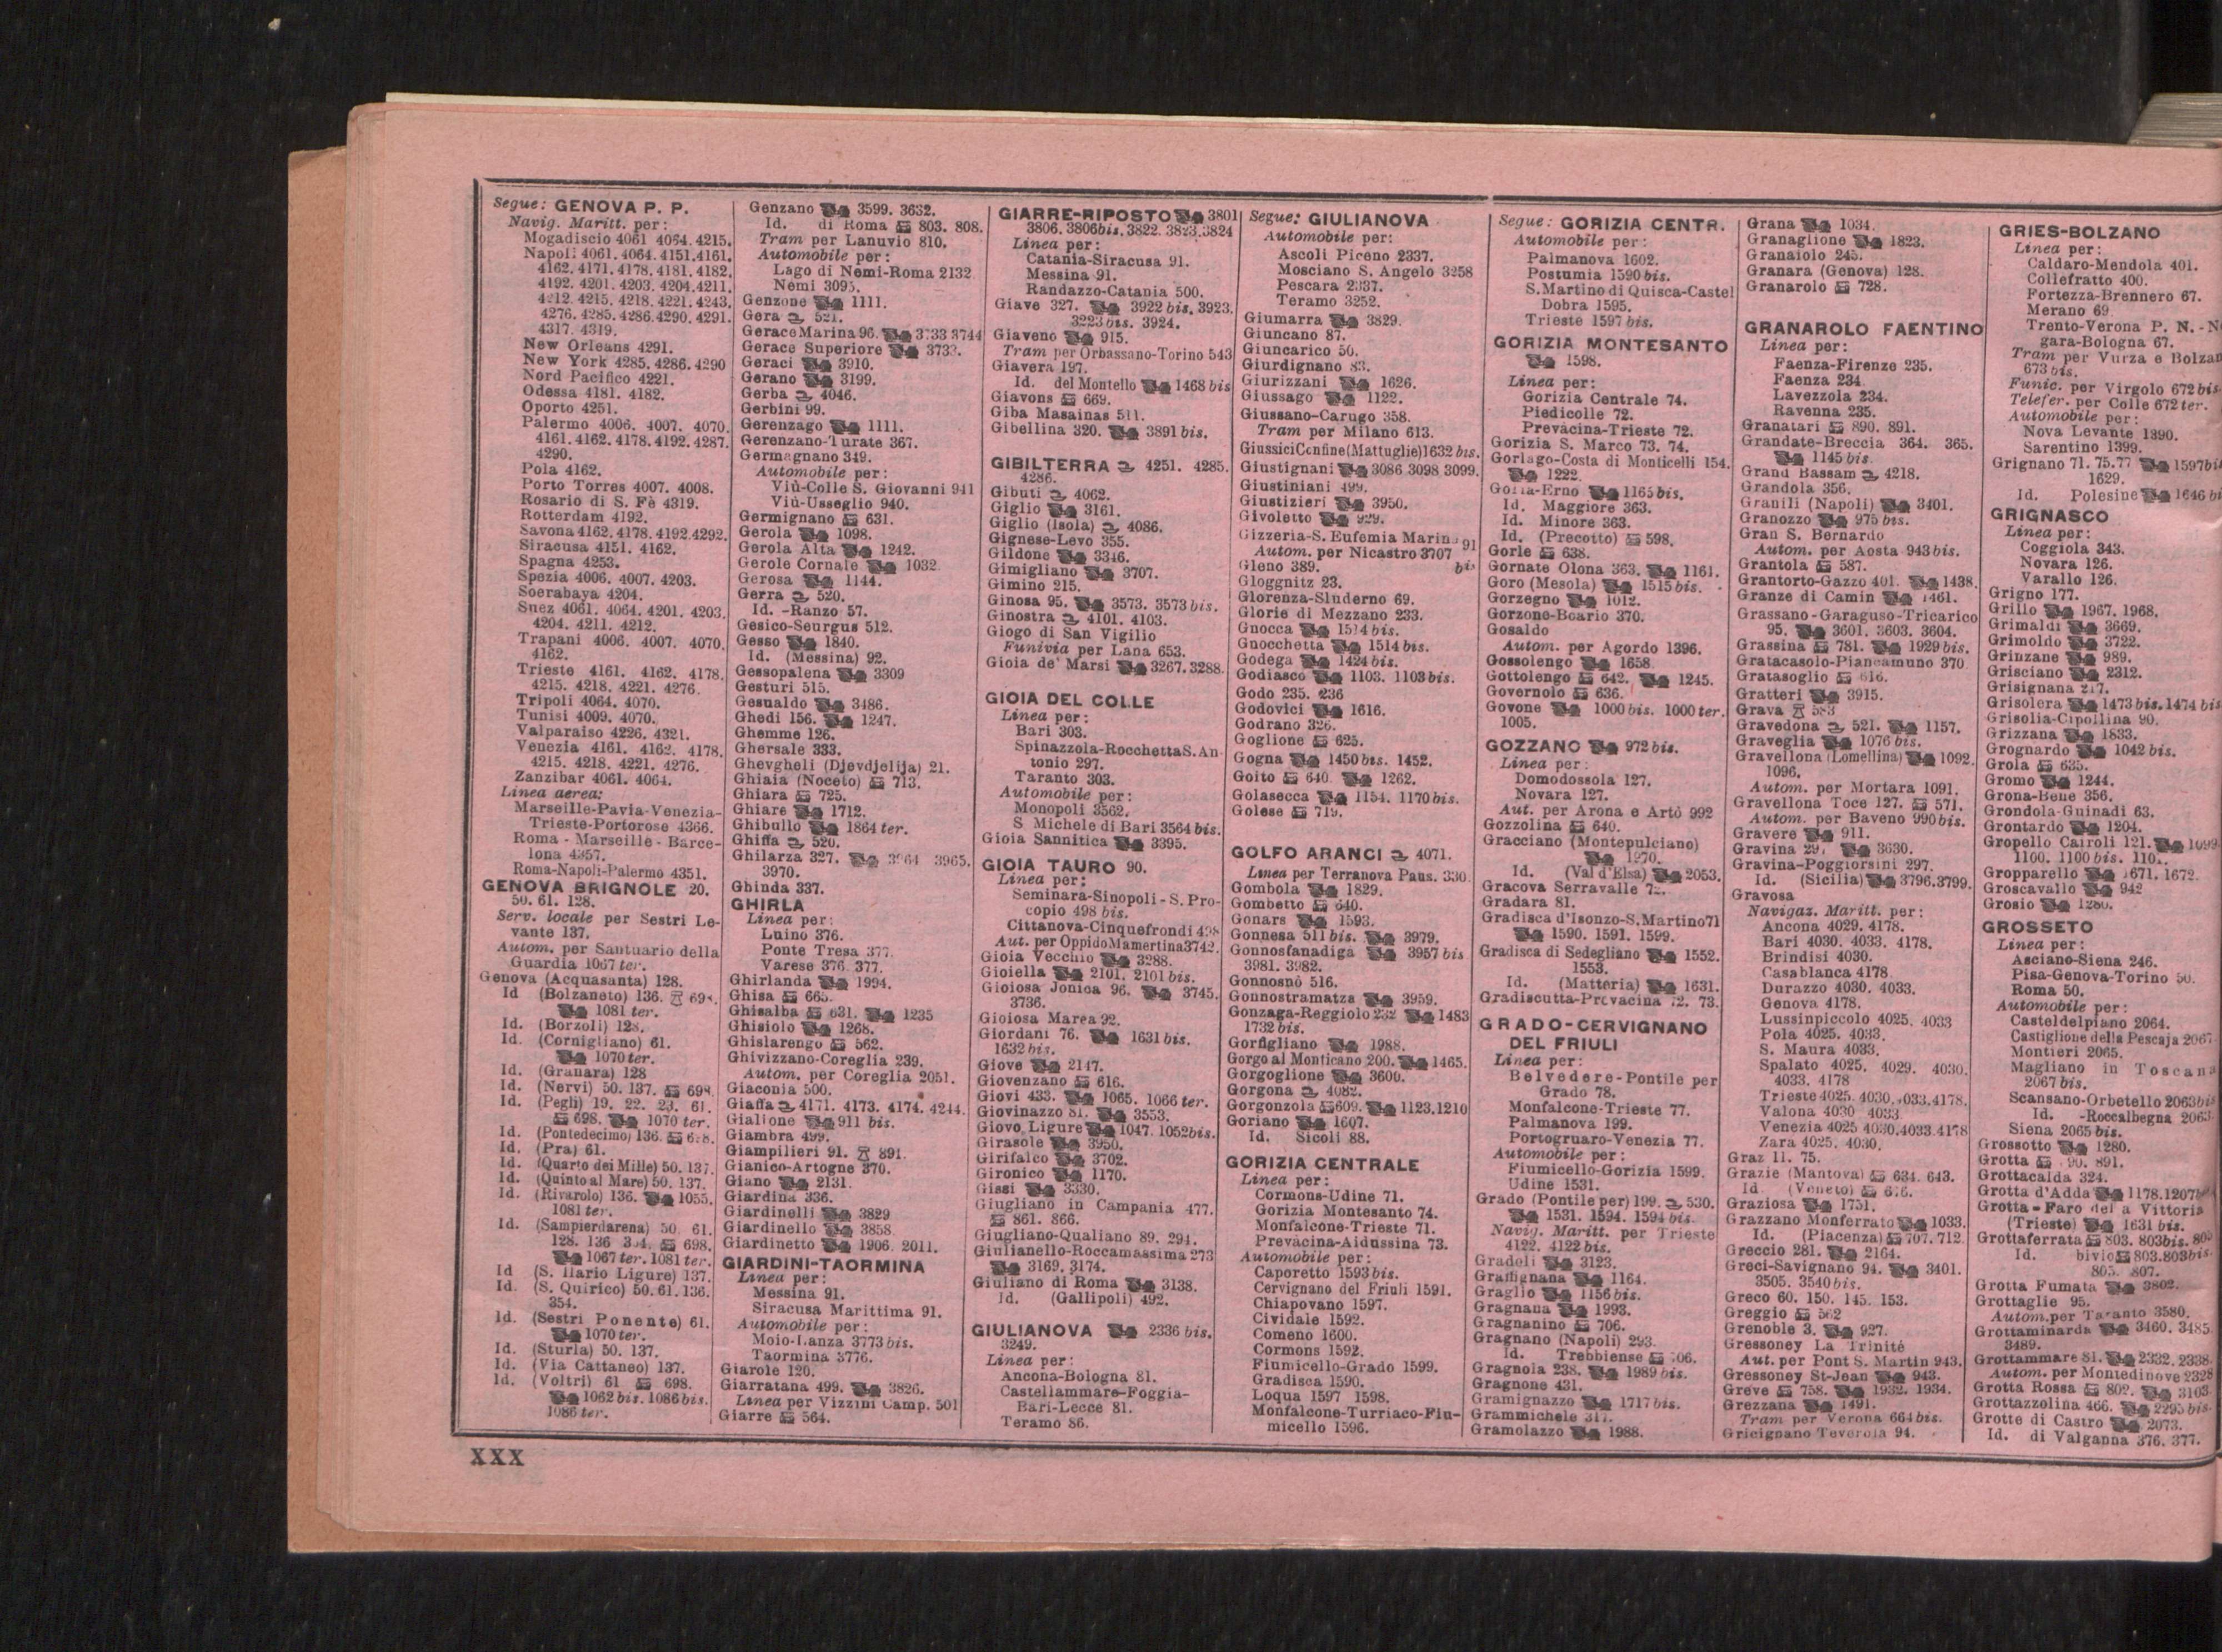 Segue: GENOVA P. P.
Navig. Maritt. per:
Mogadiscio 4061 4064. 4215.
Napoli 4061. 4064. 4151. 4161.
4162. 4171. 4178. 4181. 4182.
4192. 4201. 4203. 4204. 4211.
4212. 4215. 4218. 4221. 4243.
4276. 4285. 4286. 4290. 4291.
4317. 4319.
New Orleans 4291.
New York 4285. 4286. 4290
Nord Pacifico 4221.
Odessa 4181. 4182.
Oporto 4251.
Palermo 4006. 4007. 4070.
4161. 4162. 4178. 4192. 4287.
4290.
Pola 4162.
Porto Torres 4007. 4008.
Rosario di S. Fè 4319.
Rotterdam 4192.
Savona 4162. 4178. 4192. 4292.
Siracusa 4151. 4162.
Spagna 4253.
Spezia 4006. 4007. 4203.
Soerabaya 4204.
Suez 4061. 4064. 4201. 4203.
4204. 4211. 4212.
Trapani 4006. 4007. 4070.
4162.
Trieste 4161. 4162. 4178.
4215. 4218. 4221. 4276.
Tripoli 4064. 4070.
Tunisi 4009. 4070.
Valparaiso 4226. 4321.
Venezia 4161. 4162. 4178.
4215. 4218. 4221. 4276.
Zanzibar 4061. 4064.
Linea aerea:
Marseille-Pavia-Venezia-
Trieste-Portorose 4366.
Roma - Marseille - Barce-
lona 4357.
Roma-Napoli-Palermo 4351.
GENOVA BRIGNOLE 20.
50. 61. 128.
Serv. locale per Sestri Le-
vante 137.
Autom. per Santuario della
Guardia 1067 ter.
Genova (Acquasanta) 128.
Id (Bolzaneto) 136.
1081 ter.
Id. (Borzoli) 128.
Id. (Cornigliano) 61.
1070 ter.
Id. (Granara) 128
Id. (Nervi) 50. 137. 698
Id. (Pegli) 19. 22. 23. 61.
698. 1070 ter.
Id. (Pontedecimo) 136.
Id. (Pra) 61.
Id. (Quarto dei Mille) 50. 137.
Id. (Quinto al Mare) 50. 137.
Id. (Rivarolo) 136. 1055.
1081 ter.
Id. (Sampierdarena) 50. 61.
128. 136 698.
1067 ter. 1081 ter.
Id (S. Ilario Ligure) 137.
Id. (S. Quirico) 50. 61. 136.
354.
Id. (Sestri Ponente) 61.
1070 ter.
Id. (Sturla) 50. 137.
Id. (Via Cattaneo) 137.
Id. (Voltri) 61 698.
1062 bis. 1086 bis.
1086 ter.
Genzano 3599. 3632.
Id. di Roma 803. 808.
Tram per Lanuvio 810.
Automobile per:
Lago di Nemi-Roma 2132
Nemi 3095.
Genzone 1111.
Gera 521.
Gerace Marina 96. 3733 3744
Gerace Superiore 3733.
Geraci 3910.
Gerano 3199.
Gerba 4046.
Gerbini 99.
Gerenzago 1111.
Gerenzano-Turate 367.
Germagnano 349.
Automobile per:
Viù-Colle S. Giovanni 941
Viù-Usseglio 940.
Germignano 631.
Gerola 1098.
Gerola Alta 1242.
Gerole Cornale 1032
Gerosa 1144.
Gerra 520.
Id. -Ranzo 57.
Gesico-Seurgus 512.
Gesso 1840.
Id. (Messina) 92.
Gessopalena 3309
Gesturi 515.
Gesualdo 3486.
Ghedi 156. 1247.
Ghemme 126.
Ghersale 333.
Ghevgheli (Djevdjelija) 21.
Ghiaia (Noceto) 713.
Ghiara 725.
Ghiare 1712.
Ghibullo 1864 ter.
Ghiffa 520.
Ghilarza 327. 3964 3965.
3970.
Ghinda 337.
GHIRLA
Linea per:
Luino 376.
Ponte Tresa 377
Varese 376. 377.
Ghirlanda 1994.
Ghisa 665.
Ghisalba 631. 1235
Ghisiolo 1268.
Ghislarengo 562.
Ghivizzano-Coreglia 239.
Autom. per Coreglia 2051.
Giaconia 500.
Giaffa 4171. 4173. 4174. 4244.
Giaglione 911 bis.
Giambra 499.
Giampilieri 91. 891.
Gianico-Artogne 370.
Giano 2131.
Giardina 336.
Giardinelli 3829
Giardinello 3858
Giardinetto 1906. 2011.
GIARDINI-TAORMINA
Linea per:
Messina 91.
Siracusa Marittima 91.
Automobile per:
Moio-Lanza 3773 bis.
Taormina 3776.
Giarole 120.
Giarratana 499. 3826.
Linea per Vizzini Camp. 501
Giarre 564.
GIARRE-RIPOSTO 3801
3806. 3806bis. 3822. 3823. 3824
Linea per:
Catania-Siracusa 91.
Messina 91.
Randazzo-Catania 500.
Giave 327. 3922 bis. 3923.
3223 bis. 3924.
Giaveno 915.
Tram per Orbassano-Torino 543
Giavera 197.
Id. del Montello 1468 bis
Giavons 669.
Giba Masainas 511.
Gibellina 320. 3891 bis.
GIBILTERRA 4251. 4285.
4286.
Gibuti 4062.
Giglio 3161.
Giglio (Isola) 4086.
Gignese-Levo 355.
Gildone 3346.
Gimigliano 3707.
Gimino 215.
Ginosa 95. 3573. 3573 bis.
Ginostra 4101. 4103.
Giogo di San Vigilio
Funivia per Lana 653.
Gioia de' Marsi 3267. 3288.
GIOIA DEL COLLE
Linea per:
Bari 303.
Spinazzola-Rocchetta S. An-
tonio 297.
Taranto 303.
Automobile per:
Monopoli 3562.
S. Michele di Bari 3564 bis.
Gioia Sannitica 3395.
GIOIA TAURO 90.
Linea per:
Seminara-Sinopoli - S. Pro-
copio 498 bis.
Cittanova-Cinquefrondi 498
Aut. per Oppido Mamertina 3742.
Gioia Vecchio 3288.
Gioiella 2101. 2101 bis.
Gioiosa Jonica 96. 3745.
3736.
Gioiosa Marea 92.
Giordani 76. 1631 bis.
1632 bis.
Giove 2147.
Giovenzano 616.
Giovi 433. 1065. 1066 ter.
Giovinazzo 81. 3553.
Giovo Ligure 1047. 1052bis.
Girasole 3950.
Girifalco 3702.
Gironico 1170.
Gissi 3330.
Giugliano in Campania 477.
861. 866.
Giugliano-Qualiano 89. 294.
Giulianello-Roccamassima 273
3169. 3174.
Giuliano di Roma 3138.
Id. (Gallipoli) 492.
GIULIANOVA 2336 bis.
3249.
Linea per:
Ancona-Bologna 81.
Castellammare-Foggia-
Bari-Lecce 81.
Teramo 86.
Segue: GIULIANOVA
Automobile per:
Ascoli Piceno 2337.
Mosciano S. Angelo 3258
Pescara 2337.
Teramo 3252.
Giumarra 3829.
Giuncano 87.
Giuncarico 50.
Giurdignano 83.
Giurizzani 1626.
Giussago 1122.
Giussano-Carugo 358.
Tram per Milano 613.
Giussici Confine (Mattuglie) 1632 bis.
Giustignani 3086 3098 3099.
Giustiniani 499.
Giustizieri 3950.
Givoletto 929.
Gizzeria-S. Eufemia Marina 91
Autom. per Nicastro 3707 bis
Gleno 389.
Gloggnitz 23.
Glorenza-Sluderno 69.
Glorie di Mezzano 233.
Gnocca 1514 bis.
Gnocchetta 1514 bis.
Godega 1424 bis.
Godiasco 1103. 1103 bis.
Godo 235. 236
Godovici 1616.
Godrano 326.
Goglione 625.
Gogna 1450 bis. 1452.
Goito 640. 1262.
Golasecca 1154. 1170 bis.
Golese 719.
GOLFO ARANCI 4071.
Linea per Terranova Paus. 330
Gombola 1829.
Gombetto 640.
Gonars 1593.
Gonnesa 511 bis. 3979.
Gonnosfanadiga 3957 bis
3981. 3982.
Gonnosnò 516.
Gonnostramatza 3959.
Gonzaga-Reggiolo 232 1483
1732 bis.
Gorfigliano 1988.
Gorgo al Monticano 200. 1465.
Gorgoglione 3600.
Gorgona 4082.
Gorgonzola 609. 1123. 1210
Goriano 1607.
Id. Sicoli 88.
GORIZIA CENTRALE
Linea per:
Cormons-Udine 71.
Gorizia Montesanto 74.
Monfalcone-Trieste 71.
Prevacina-Aidussina 73.
Automobile per:
Caporetto 1593 bis.
Cervignano del Friuli 1591.
Chiapovano 1597.
Cividale 1592.
Comeno 1600.
Cormons 1592.
Fiumicello-Grado 1599.
Gradisca 1590.
Loqua 1597 1598.
Monfalcone-Turriaco-Fiu-
micello 1596.
Segue: GORIZIA CENTR.
Automobile per:
Palmanova 1602.
Postumia 1590 bis.
S. Martino di Quisca-Castel
Dobra 1595.
Trieste 1597 bis.
GORIZIA MONTESANTO
1598.
Linea per:
Gorizia Centrale 74.
Piedicolle 72.
Prevacina-Trieste 72.
Gorizia S. Marco 73. 74.
Gorlago-Costa di Monticelli 154.
1222.
Gorla-Erno 1165 bis.
Id. Maggiore 363.
Id. Minore 363.
Id. (Precotto) 598.
Gorle 638.
Gornate Olona 363. 1161.
Goro (Mesola) 1515 bis.
Gorzegno 1012.
Gorzone-Boario 370.
Gosaldo
Autom. per Agordo 1396.
Gossolengo 1658
Gottolengo 642. 1245.
Governolo 636.
Govone 1000 bis. 1000 ter.
1005.
GOZZANO 972 bis.
Linea per:
Domodossola 127.
Novara 127.
Aut. per Arona e Artò 992
Gozzolina 640.
Gracciano (Montepulciano)
1270.
Id. (Val d'Elsa) 2053.
Gracova Serravalle
Gradara 81.
Gradisca d'Isonzo-S. Martino 71
1590. 1591. 1599.
Gradisca di Sedegliano 1552.
1553.
Id. (Matteria) 1631.
Gradiscutta-Prevacina 72. 73.
GRADO-CERVIGNANO
DEL FRIULI
Linea per:
Belvedere-Pontile per
Grado 78.
Monfalcone-Trieste 77.
Palmanova 199.
Portogruaro-Venezia 77.
Automobile per:
Fiumicello-Gorizia 1599.
Udine 1531.
Grado (Pontile per) 199. 530.
1531. 1594. 1594 bis.
Navig. Maritt. per Trieste
4122. 4122 bis.
Gradoli 3123.
Graffignana 1164.
Graglio 1156 bis.
Gragnana 1993.
Gragnanino 706.
Gragnano (Napoli) 293.
Id. Trebbiense 706.
Gragnola 238. 1989 bis.
Gragnone 431.
Gramignazzo 1717 bis.
Grammichele 317.
Gramolazzo 1988.
Grana 1034.
Granaglione 1823.
Granaiolo 245.
Granara (Genova) 128.
Granarolo 728.
GRANAROLO FAENTINO
Linea per:
Faenza-Firenze 235.
Faenza 234
Lavezzola 234.
Ravenna 235.
Granatari 890. 891.
Grandate-Breccia 364. 365.
1145 bis.
Grand Bassam 4218.
Grandola 356.
Granili (Napoli) 3401.
Granozzo 975 bis.
Gran S. Bernardo
Autom. per Aosta 943 bis.
Grantola 587.
Grantorto-Gazzo 401. 1438.
Granze di Camin 1461.
Grassano-Garaguso-Tricarico
95. 3601. 3603. 3604.
Grassina 781. 1929 bis.
Gratacasolo-Piancamuno 370
Gratasoglio 616.
Gratteri 3915.
Grava 583
Gravedona 521. 1157.
Graveglia 1076 bis.
Gravellona (Lomellina) 1092.
1096.
Autom. per Mortara 1091.
Gravellona Toce 127. 571.
Autom. per Baveno 990 bis.
Gravere 911.
Gravina 297 3630.
Gravina-Poggiorsini 297.
Id. (Sicilia) 3796. 3799.
Gravosa
Navigaz. Maritt. per:
Ancona 4029. 4178.
Bari 4030. 4033. 4178.
Brindisi 4030.
Casablanca 4178
Durazzo 4030. 4033.
Genova 4178.
Lussinpiccolo 4025. 4033
Pola 4025. 4033.
S. Maura 4033.
Spalato 4025. 4029. 4030.
4033. 4178
Trieste 4025. 4030. 4033. 4178.
Valona 4030 4033
Venezia 4025 4030. 4033. 4178
Zara 4025. 4030.
Graz 11. 75.
Grazie (Mantova) 634. 643.
Id. (Veneto) 636.
Graziosa 1751.
Grazzano Monferrato 1033.
Id. (Piacenza) 707. 712.
Greccio 281. 2164.
Greci-Savignano 94. 3401.
3505. 3540 bis.
Greco 60. 150. 145. 153.
Greggio 562
Grenoble 3. 927.
Gressoney La Trinité
Aut. per Pont S. Martin 943.
Gressoney St-Jean 943.
Greve 758. 1932. 1934.
Grezzana 1491.
Tram per Verona 664 bis.
Gricignano Teverola 94.
GRIES-BOLZANO
Linea per:
Caldaro-Mendola 401.
Collefratto 400.
Fortezza-Brennero 67.
Merano 69
Trento-Verona P. N. -
gara-Bologna 67.
Tram per Vurza e
673 bis.
Funic. per Virgolo 672 bis
Telefer. per Colle 672 ter.
Automobile per:
Nova Levante 1390.
Sarentino 1399.
Grignano 71. 75. 77
1629.
Id. Polesine
GRIGNASCO
Linea per:
Coggiola 343.
Novara 126.
Varallo 126.
Grigno 177.
Grilio 1967. 1968.
Grimaldi 3669.
Grimoldo 3722.
Grinzane 989.
Grisciano 2312.
Grisignana 217.
Grisolera 1473 bis. 1474 bis
Grisolia-Cipollina 90.
Grizzana 1833.
Grognardo 1042 bis.
Grola 635.
Gromo 1244.
Grona-Bene 356.
Grondola-Guinadi 63.
Grontardo 1204.
Gropello Cairoli 121. 1099
1100. 1100 bis.
Gropparello 1671. 1672.
Groscavallo 942
Grosio 1280.
GROSSETO
Linea per:
Asciano-Siena 246.
Pisa-Genova-Torino 50.
Roma 50.
Automobile per:
Casteldelpiano 2064.
Castiglione della Pescaja 2067
Montieri 2065.
Magliano in Toscana
2067 bis.
Scansano-Orbetello 2063 bis
Id. -Roccalbegna 2063
Siena 2065 bis.
Grossotto 1280.
Grotta 890. 891.
Grottacalda 324.
Grotta d'Adda 1178.
Grotta - Faro della Vittoria
(Trieste) 1631 bis.
Grottaferrata 803. 803bis.
Id. bivio 803. 803bis.
805. 807.
Grotta Fumata 3802.
Grottaglie 95.
Autom. per Taranto 3580.
Grottaminarda 3460. 3485
3489.
Grottammare 81. 2332. 2338
Autom. per Montedinove 2328
Grotta Rossa 802. 3103
Grottazzolina 466. 2295 bis.
Grotte di Castro 2073.
Id. di Valganna 376. 377.
XXX